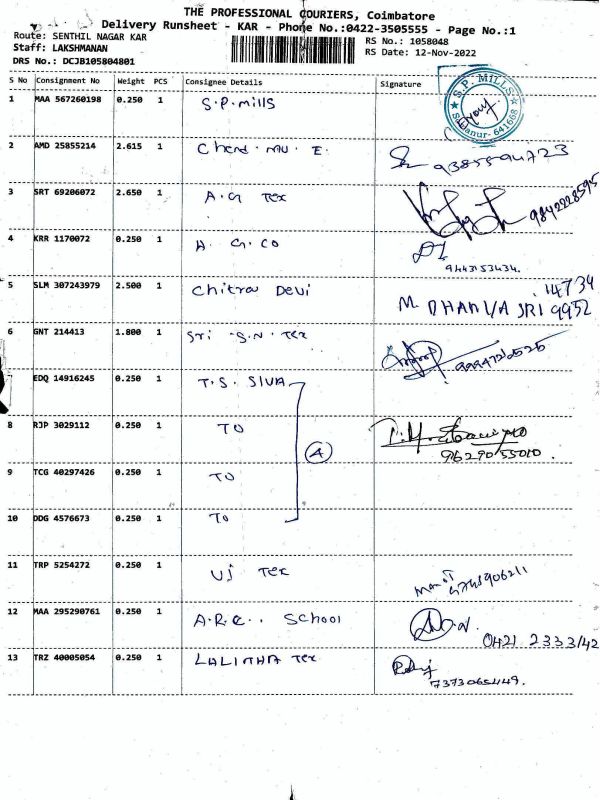 THE PROFESSIONAL COURIERS, Coimbatore
Delivery Runsheet - KAR - Phone No.:0422-3505555 - Page No.:1
Route: SENTHIL NAGAR KAR
Staff: LAKSHMANAN
DRS No.: DCJB105804801
RS No.: 1058048
RS Date: 12-Nov-2022
S No Consignment No Weight PCS Consignee Details Signature
1 MAA 567260198 0.250 1 S.P.mills
S.P. MILLS 641668
2 AMD 25855214 2.615 1
3 SRT 69206072 2.650 1 A.G Tex 9842228595
4 KRR 1170072 0.250 1 A. G. CO
9443153434.
5 SLM 307243979 2.500 1 Chitra Devi
14734
M. DHANYA SRI 9952
6 GNT 214413 1.800 1 Sri .S.N. Tex
EDQ 14916245 0.250 1 T.S. SIVA
8 RJP 3029112 0.250 1 TO
4
9629055010.
9 TCG 40297426 0.250 1 TO
10 DDG 4576673 0.250 1 TO
11 TRP 5254272 0.250 1 VJ Tex
12 MAA 295290761 0.250 1 A.R.C.. School
0421 2333142
13 TRZ 40005054 0.250 1 LALITHA Tex
7373065449.